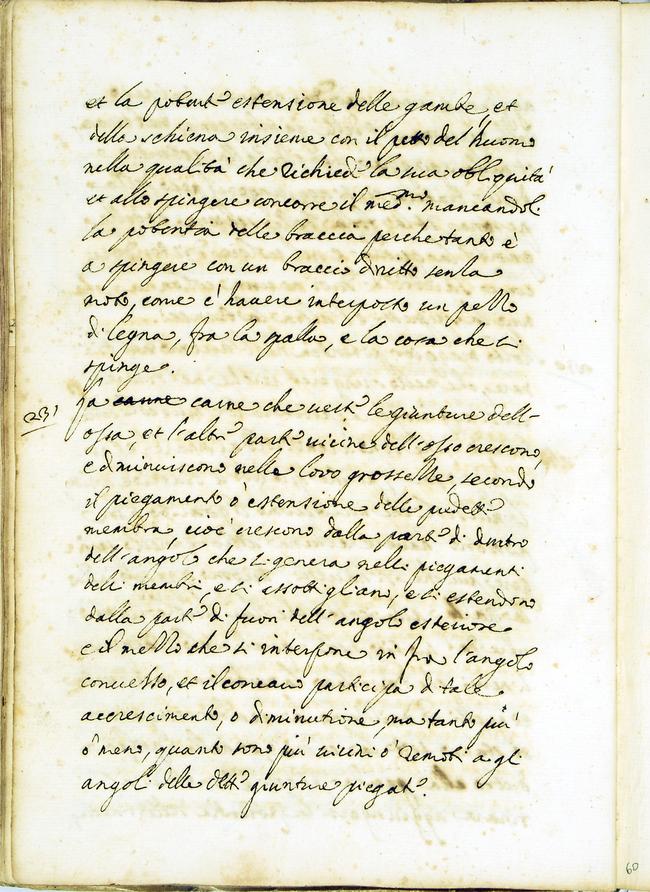 et la potent.ᵃ estensione delle gambe, et
della schiena insieme con il petto del huomo
nella qualità che richiede la sua obliquità
et allo spingere concorre il med.ᵐᵒ mancandoli
la potentia delle braccia perche tanto è
a spingere con un braccio dritto senza
moto, come è havere interposto un pezzo
di legno, fra la spalla, e la cosa che si
spinge.
231 La carne carne che veste le giunture dell'-
ossa, et l'altre parti vicine dell'osso crescono,
e diminuiscono nelle loro grossezze, secondo
il piegamento ò estensione delle predette
membra, cioè crescono dalla parte di dentro
dell'angolo che si genera nelli piegamenti
delli membri, e si assottigliano, e si estendono
dalla parte di fuori dell'angolo esteriore
e il mezzo che si interpone in fra l'angolo
convesso, et il concavo participa di tale
accrescimento, o diminutione, ma tanto più
ò meno, quanto sono più vicini ò remoti agli
angoli delle dette giunture piegate.
60